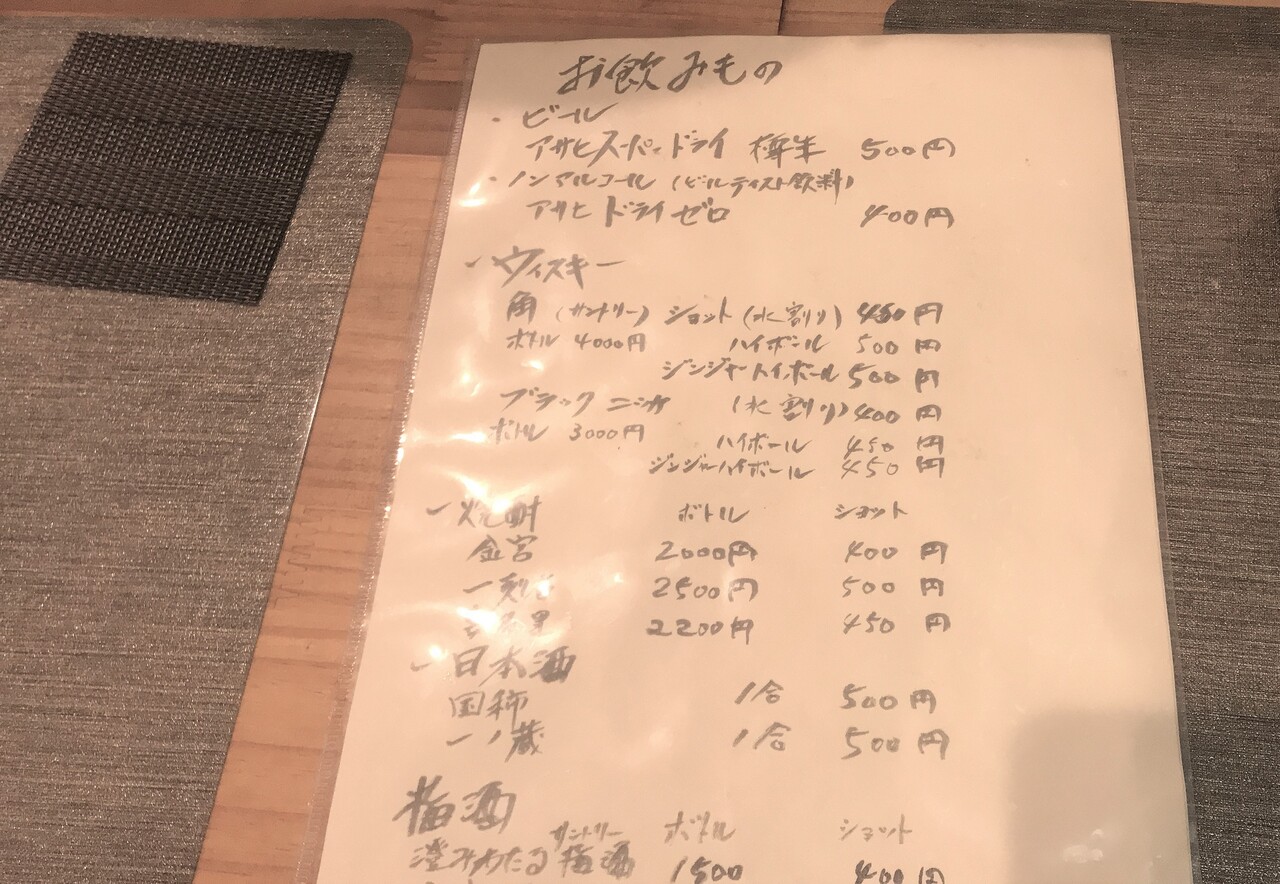 お飲みもの
・ビール
アサヒスーパードライ 樽生 500円
・ノンアルコール (ビールテイスト飲料)
アサヒ ドライゼロ 400円
・ウィスキー
角 (サントリー) ショット (水割り) 450円
ボトル 4000円 ハイボール 500円
ジンジャーハイボール 500円
ブラックニッカ (水割り) 400円
ボトル 3000円 ハイボール 450円
ジンジャーハイボール 450円
・焼酎 ボトル ショット
金宮 2000円 400円
一刻 2500円 500円
2200円 450円
・日本酒
国稀 1合 500円
一ノ蔵 1合 500円
梅酒 ボトル ショット
澄みわたる サントリー 梅酒 1500 400円